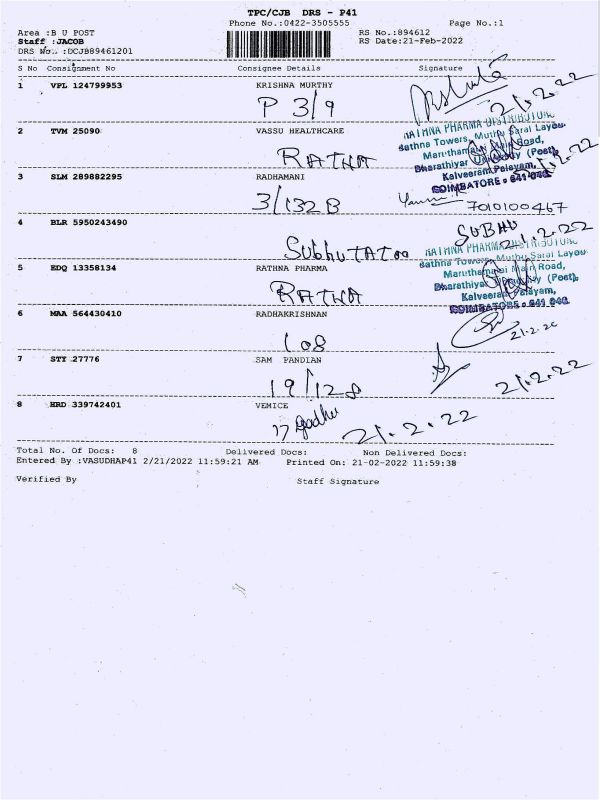 TPC/CJB DRS - P41
Phone No.:0422-3505555 Page No.:1
Area :B U POST RS No.:894612
Staff :JACOB RS Date:21-Feb-2022
DRS No.. :DCJB89461201
S No Consignment No Consignee Details Signature
1 VPL 124799953 KRISHNA MURTHY
P 3/9 21.2.22
2 TVM 25090 VASSU HEALTHCARE
RATHNA PHARMA DISTRIBUTORS
Rathna Towers, Muthu Sarai Layout
Maruthamalai Main Road,
Bharathiyar University (Post),
Kalveeram Palayam,
COIMBATORE - 641 046
RATNA 21.2.22
3 SLM 289882295 RADHAMANI
3/132B 7010100467
4 BLR 5950243490
Subhu TATOO SUBHU 21.2.22
5 EDQ 13358134 RATHNA PHARMA
RATHNA PHARMA DISTRIBUTORS
Rathna Towers, Muthu Sarai Layout
Maruthamalai Main Road,
Bharathiyar University (Post),
Kalveeram Palayam,
COIMBATORE - 641 046
RATNA
6 MAA 564430410 RADHAKRISHNAN
108 21-2-22
7 STY 27776 SAM PANDIAN
19/128 21.2.22
8 HRD 339742401 VEMICE
17 21.2.22
Total No. Of Docs: 8 Delivered Docs: Non Delivered Docs:
Entered By :VASUDHAP41 2/21/2022 11:59:21 AM Printed On: 21-02-2022 11:59:38
Verified By Staff Signature